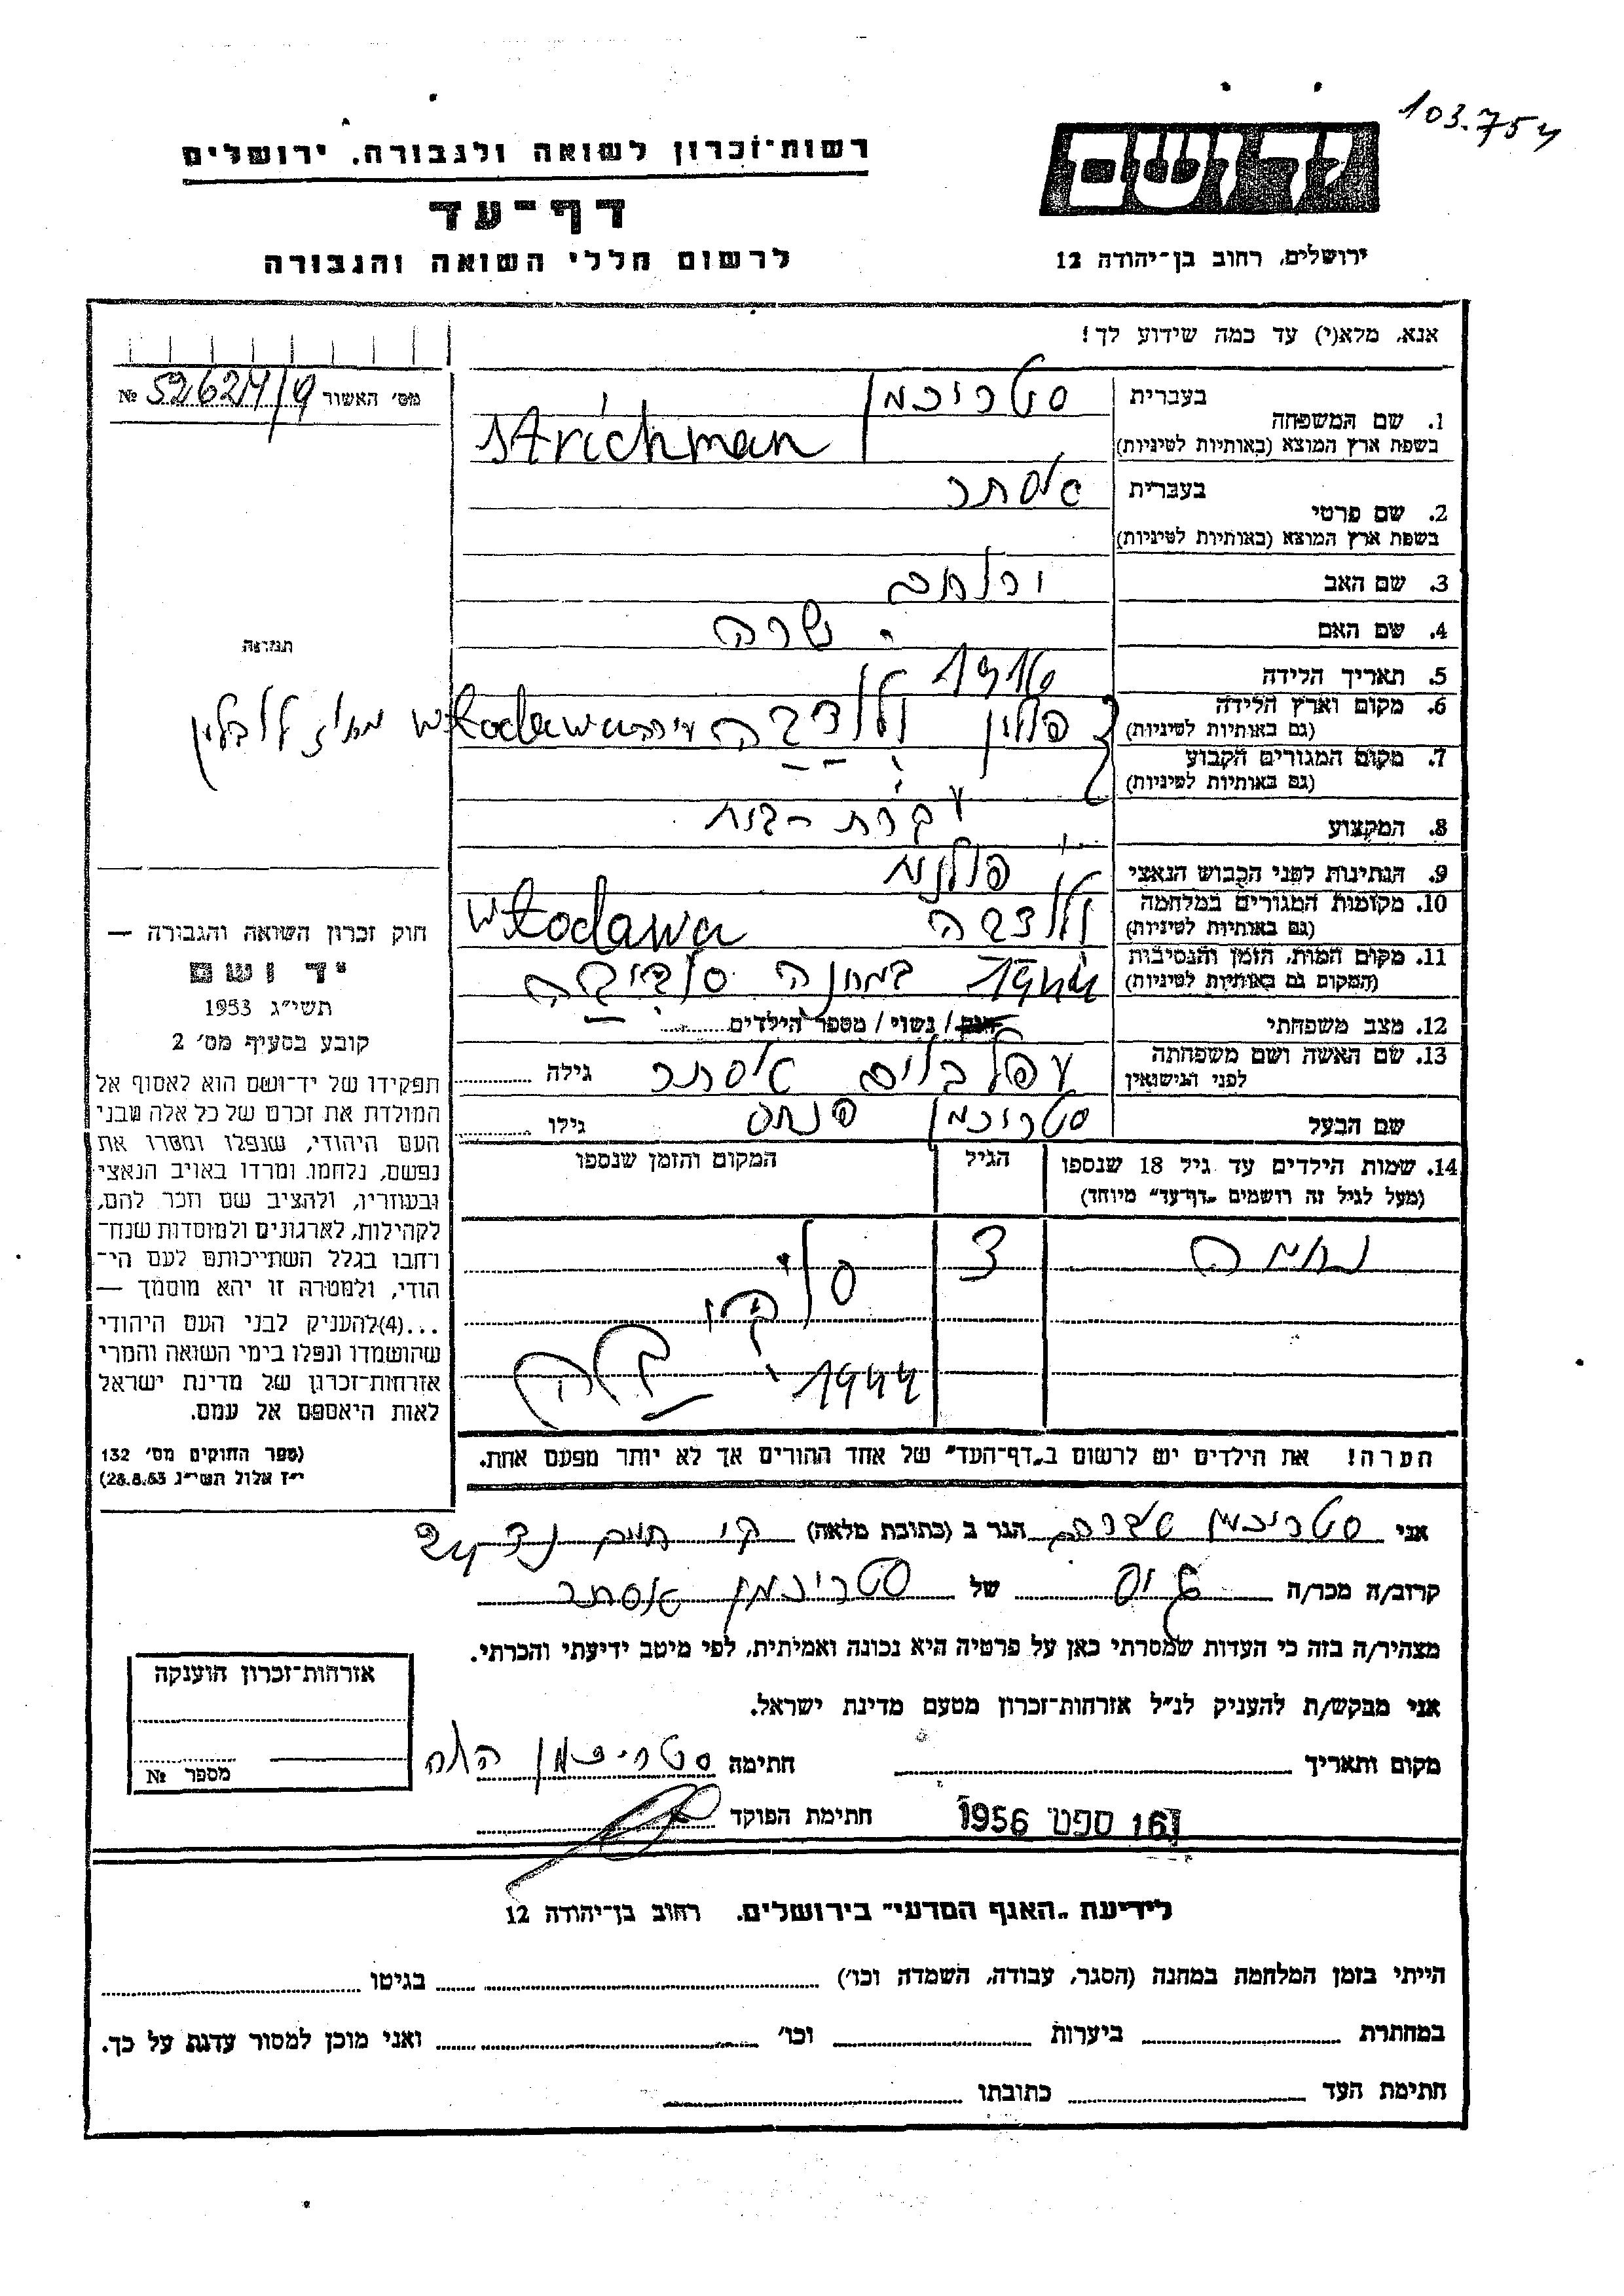 103.754
יד ושם
רשות־זכרון לשואה ולגבורה, ירושלים
דף־עד
לרשום חללי השואה והגבורה
ירושלים, רחוב בן־יהודה 12
אנא, מלא(י) עד כמה שידוע לך!
מס׳ האשור № 52624/9
1. שם המשפחה
בעברית סטריכמן
בשפת ארץ המוצא (באותיות לטיניות) Strichman
2. שם פרטי
בעברית אסתר
בשפת ארץ המוצא (באותיות לטיניות)
3. שם האב
4. שם האם שרה
תמונה
5. תאריך הלידה 1916
6. מקום וארץ הלידה
(גם באותיות לטיניות) פולין ולודבה Włodawa
7. מקום המגורים הקבוע
(גם באותיות לטיניות)
8. המקצוע עקרת הבית
9. הנתינות לפני הכבוש הנאצי פולנית
10. מקומות המגורים במלחמה
(גם באותיות לטיניות) ולודבה Włodawa
11. מקום המות, הזמן והנסיבות
(המקום גם באותיות לטיניות) 1944 במחנה סוביבה
12. מצב משפחתי רווק / נשוי / מספר הילדים
13. שם האשה ושם משפחתה
לפני הנישואין אפלבוים אסתר גילה
שם הבעל סטריכמן פנחס גילו
14. שמות הילדים עד גיל 18 שנספו
(מעל לגיל זה רושמים „דף־עד” מיוחד)
הגיל
המקום והזמן שנספו
נחמה 3
1944
הערה! את הילדים יש לרשום ב„דף־העד” של אחד ההורים אך לא יותר מפעם אחת.
חוק זכרון השואה והגבורה —
יד ושם
תשי״ג 1953
קובע בסעיף מס׳ 2
תפקידו של יד־ושם הוא לאסוף אל
המולדת את זכרם של כל אלה מבני
העם היהודי, שנפלו ומסרו את
נפשם, נלחמו, ומרדו באויב הנאצי
ובעוזריו, ולהציב שם וזכר להם,
לקהילות, לארגונים ולמוסדות שנח־
רחבו בגלל השתייכותם לעם הי־
הודי, ולמטרה זו יהא מוסמך —
...(4) להעניק לבני העם היהודי
שהושמדו ונפלו בימי השואה והמרי
אזרחות־זכרון של מדינת ישראל
לאות היאספם אל עמם.
(ספר החוקים מס׳ 132
י״ז אלול תשי״ג 28.8.53)
אני סטריכמן הגר ב (כתובת מלאה)
קרוב/ה מכר/ה גיס של סטריכמן אסתר
מצהיר/ה בזה כי העדות שמסרתי כאן על פרטיה היא נכונה ואמיתית, לפי מיטב ידיעתי והכרתי.
אני מבקש/ת להעניק לנ״ל אזרחות־זכרון מטעם מדינת ישראל.
מקום ותאריך חתימה סטריכמן
16 ספט׳ 1956 חתימת הפוקד
אזרחות־זכרון הוענקה
מספר №
לידיעת „האגף המדעי” בירושלים, רחוב בן־יהודה 12
הייתי בזמן המלחמה במחנה (הסגר, עבודה, השמדה וכו׳) בגיטו
במחתרת ביערות וכו׳ ואני מוכן למסור עדות על כך.
חתימת העד כתובתו